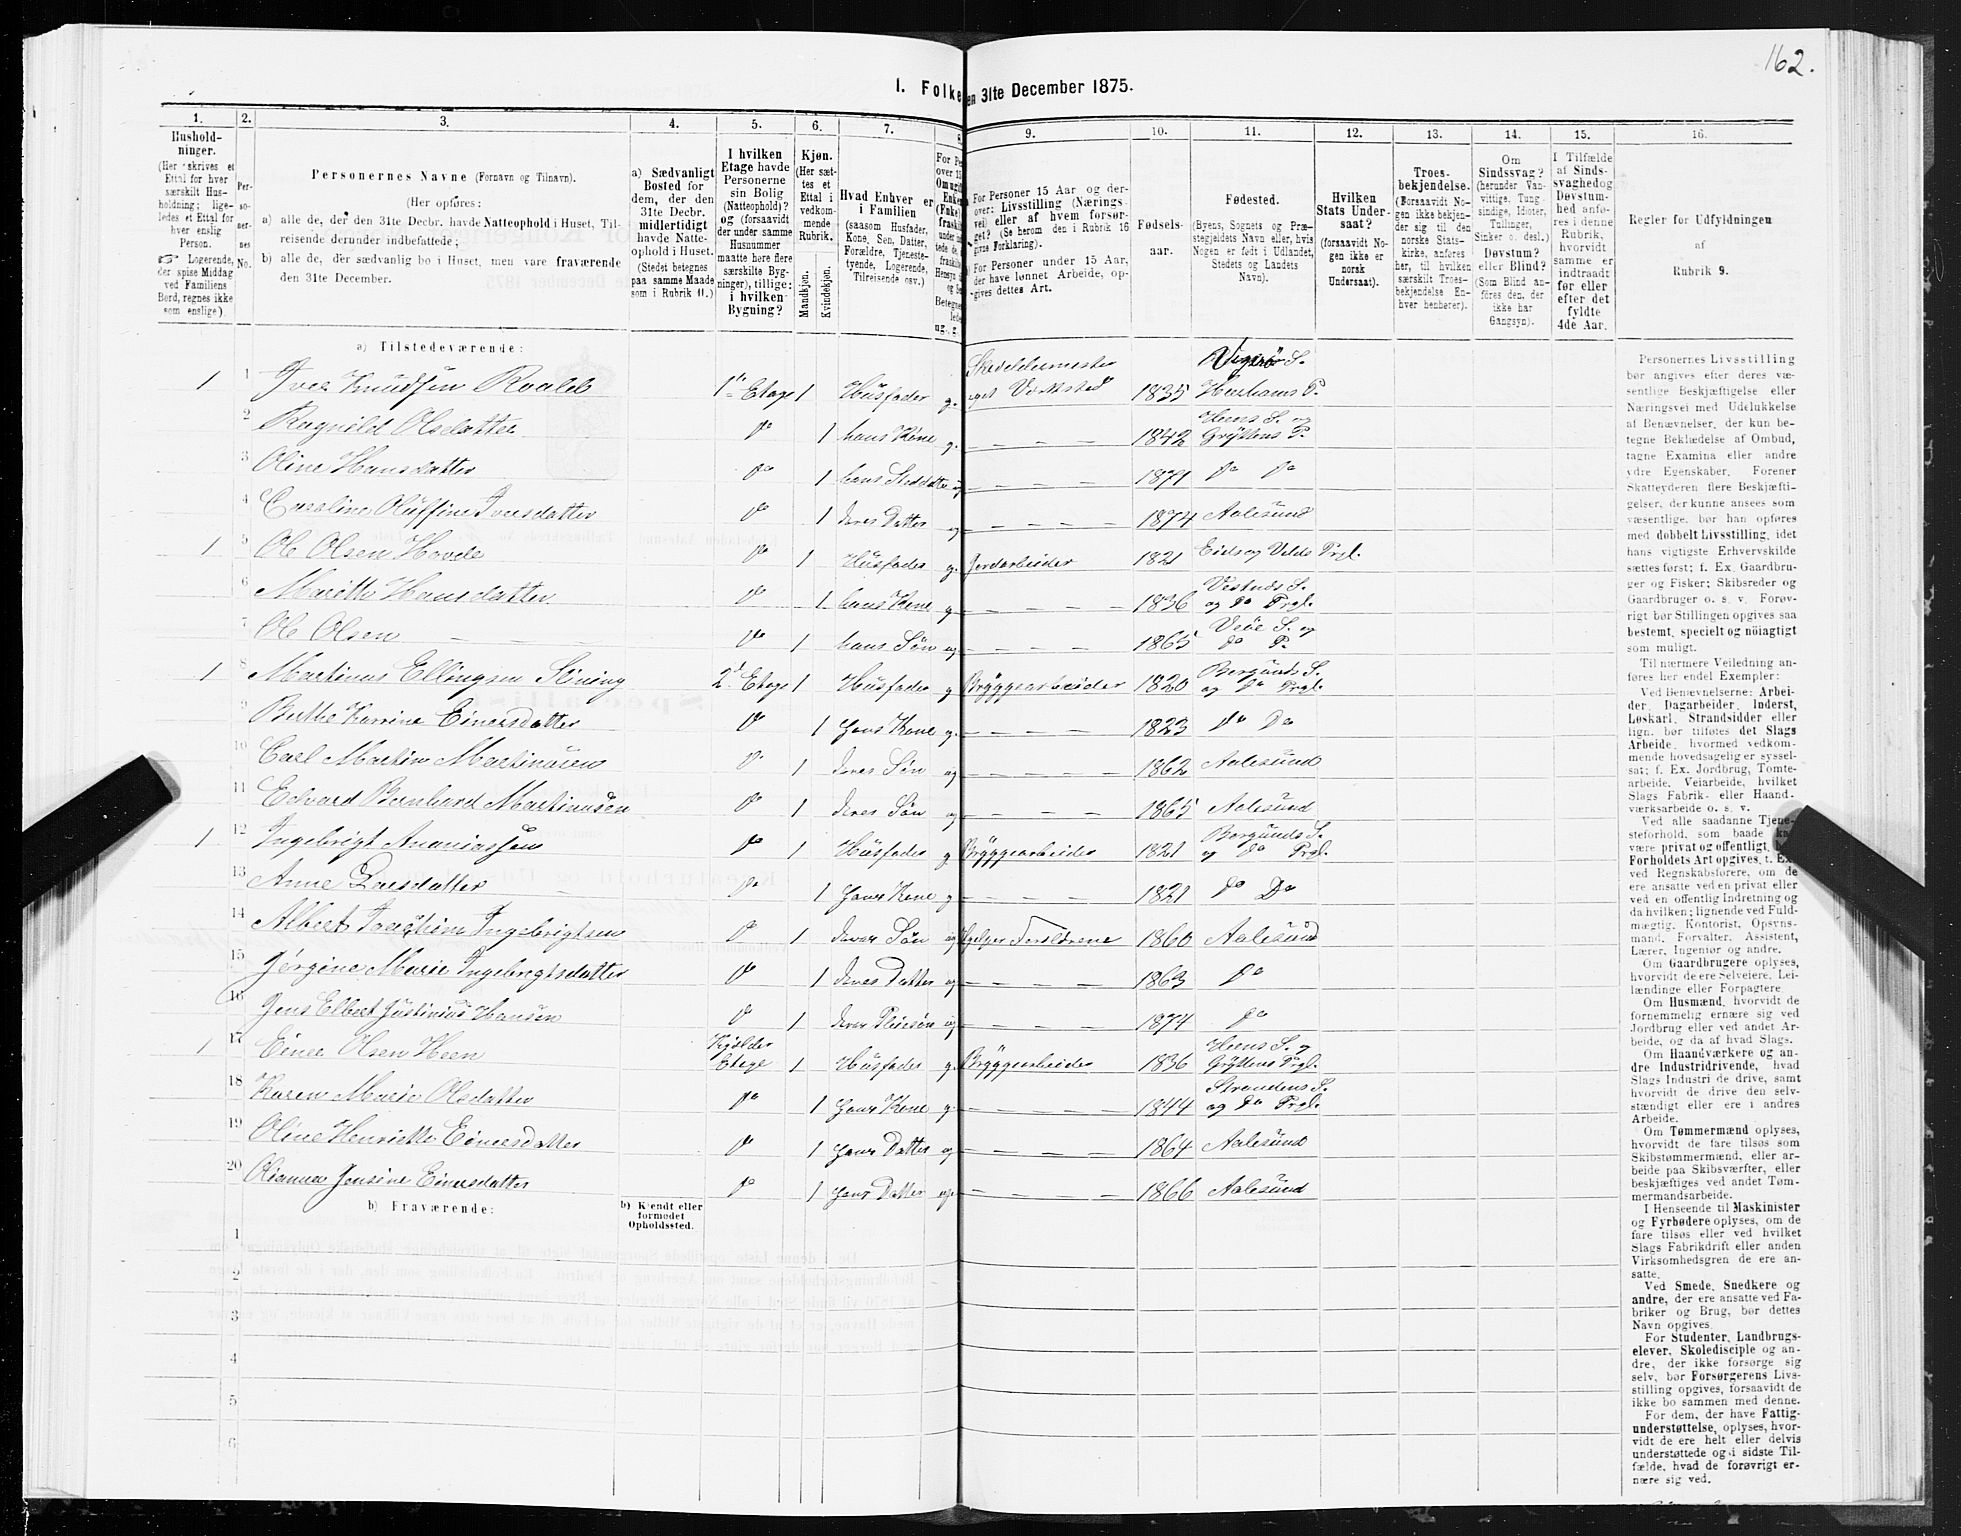 162.
I. Folke en 31te December 1875.
1. 2. 3. 4. 5. 6. 7. 8 9. 10. 11. 12. 13. 14. 15. 16.
Hushold-
ninger.
(Her skrives et
Ettal for hver
særskilt Hus-
holdning; lige-
ledes et Ettal for
hver enslig
Person.
☞ Logerende,
der spise Middag
ved Familiens
Bord, regnes ikke
som enslige).
Per-
so-
ner-
nes
No.
Personernes Navne (Fornavn og Tilnavn).
(Her opføres:
a) alle de, der den 31te Decbr. havde Natteophold i Huset, Til-
reisende derunder indbefattede;
b) alle de, der sædvanlig bo i Huset, men vare fraværende
den 31te December.
a) Sædvanligt
Bosted for
dem, der den
31te Decbr.
midlertidigt
havde Natte-
ophold i Huset.
(Stedet betegnes
paa samme Maade
som i Rubrik 11.)
I hvilken
Etage havde
Personerne
sin Bolig
(Natteophold)?
og (forsaavidt
der under samme
Husnummer
maatte høre flere
særskilte Byg-
ninger), tillige:
i hvilken
Bygning?
Kjøn.
(Her sæt-
tes et
Ettal i
vedkom-
mende
Rubrik.
Mandkjøn.
Kvindekjøn.
Hvad Enhver er
i Familien
(saasom Husfader,
Kone, Søn, Datter,
Forældre, Tjeneste-
tyende, Logerende,
Tilreisende osv.)
For Personer 15 Aar og der-
over: Livsstilling (Nærings-
vei) eller af hvem forsør-
get? (Se herom den i Rubrik 16
givne Forklaring).
For Personer under 15 Aar,
der have lønnet Arbeide, op-
gives dettes Art.
Fødsels-
aar.
Fødested.
(Byens, Sognets og Præ-
stegjeldets Navn eller, hvis
Nogen er født i Udlandet,
Stedets og Landets
Navn).
Hvilken
Stats Under-
saat?
(forsaavidt No-
gen ikke er
norsk
Undersaat).
Troes-
bekjendelse.
(Forsaavidt No-
gen ikke bekjen-
der sig til den
norske Stats-
kirke, anføres
her, til hvilken
særskilt Troes-
bekjendelse En-
hver henhører).
Om
Sindssvag?
(herunder Van-
vittige, Tung-
sindige, Idioter,
Tullinger,
Sinker o. desl.)
Døvstum?
eller Blind?
(Som Blind an-
føres den, der
ikke har
Gangsyn).
I Tilfælde
af Sinds-
svaghed og
Døvstum-
hed anfø-
res i denne
Rubrik,
hvorvidt
samme er
indtraadt
før eller
efter det
fyldte
4de Aar.
Regler for Udfyldningen
af
Rubrik 9.
a) Tilstedeværende:
1 1 Iver Knudsen Roald 1ste Etage 1 Husfader g. eget Værksted 1835 S. P.
2 Ragnild Olsdatter Do 1 hans Kone g. 1842 Heens S. og Gryttens P.
3 Oline Hansdatter Do 1 hans ug 1871 Do Do
4 Caroline Oluffine Iversdatter Do 1 deres Datter ug 1874 Aalesund
1 5 Ole Olsen Hovde Do 1 Husfader g. Jordarbeider 1821 Eids og Volds Prgl.
6 Marithe Hansdatter Do 1 hans Kone g. 1836 Vestnæs S. og Do Prgl.
7 Ole Olsen Do 1 hans Søn ug 1865 Veøe S. og Do P.
1 8 Martinus Ellingsen 2d Etage 1 Husfader g Bryggearbeider 1820 Borgunds S. og Do Prgl.
9 Berthe Karrine Einersdatter Do 1 Hans Kone g. 1823 Do Do
10 Carl Martin Martinusen Do 1 deres Søn ug 1862 Aalesund
11 Edvard Bernhard Martinusen Do 1 deres Søn ug 1865 Aalesund
1 12 Ingebrigt Ananiassen Do 1 Husfader g. Bryggearbeider 1821 Borgunds S. og Do Prgl.
13 Anne Larsdatter Do 1 Hans Kone g 1821 Do Do
14 Albert Joachim Ingebrigtsen Do 1 deres Søn ug Hjelper Forældrene 1860 Aalesund
15 Jørgine Marie Ingebrigtsdatter Do 1 deres Datter ug 1863 Do
16 Jens Elbert Justinius Hansen Do 1 deres Pleiesøn ug 1874 Do
1 17 Einer Olsen Heen Kjelder Etage 1 Husfader g. Bryggearbeider 1836 Heens S. og Gryttens Prgl.
18 Karen Marie Olsdatter Do 1 Hans Kone g. 1844 Strandens S. og Do Prgl.
19 Oline Henriette Einersdatter Do 1 Hans Datter ug 1864 Aalesund
20 Olianna Jensine Einersdatter Do 1 Hans Datter ug. 1866 Aalesund
b) Fraværende:
b) Kjendt eller
formodet
Opholdssted.
1
2
3
4
5
6
Personernes Livsstilling
bør angives efter deres væ-
sentlige Beskjæftigelse eller
Næringsvei med Udelukkelse
af Benævnelser, der kun be-
tegne Beklædelse af Ombud,
tagne Examina eller andre
ydre Egenskaber. Forener
Skatteyderen flere Beskjæfti-
gelser, der kunne ansees som
væsentlige, bør han opføres
med dobbelt Livsstilling, idet
hans vigtigste Erhvervskilde
sættes først; f. Ex. Gaardbru-
ger og Fisker; Skibsreder og
Gaardbruger o. s. v. Forøv-
rigt bør Stillingen opgives saa
bestemt, specielt og nöiagtigt
som muligt.
Til nærmere Veiledning an-
føres her endel Exempler:
Ved Benævnelserne: Arbei-
der, Dagarbeider, Inderst,
Løskarl, Strandsidder eller
lign. bør tilføies det Slags
Arbeide, hvormed vedkom-
mende hovedsagelig er syssel-
sat; f. Ex. Jordbrug, Tomte-
arbeide, Veiarbeide, hvilket
Slags Fabrik- eller Haand-
værksarbeide o. s. v.
Ved alle saadanne Tjene-
steforhold, som baade ka
være privat og offentligt, b
Forholdets Art opgives, t. Ex
ved Regnskabsførere, om de
ere ansatte ved en privat eller
ved en offentlig Indretning og
da hvilken; lignende ved Fuld-
mægtig, Kontorist, Opsyns-
mand, Forvalter, Assistent,
Lærer, Ingeniør og andre.
Om Gaardbrugere oplyses,
hvorvidt de ere Selveiere, Lei-
lændinge eller Forpagtere
Om Husmænd, hvorvidt de
fornemmelig ernære sig ved
Jordbrug eller ved andet Ar-
beide, og da af hvad Slags.
Om Haandværkere og an-
dre Industridrivende, hvad
Slags Industri de drive, samt
hvorvidt de drive den selv-
stændigt eller ere i andres
Arbeide.
Om Tømmermænd oplyses,
hvorvidt de fare tilsøs som
Skibstømmermænd, eller ar-
beide paa Skibsværfter, eller
beskjæftiges ved andet Tøm-
mermandsarbeide.
I Henseende til Maskinister
og Fyrbødere oplyses, om de
fare tilsøs eller ved hvilket
Slags Fabrikdrift eller anden
Virksomhedsgren de ere an-
satte.
Ved Smede, Snedkere og
andre, der ere ansatte ved Fa-
briker og Brug, bør dettes
Navn opgives.
For Studenter, Landbrugs-
elever, Skoledisciple og an-
dre, der ikke forsørge sig
selv, bør Forsørgerens Livs-
stilling opgives, forsaavidt de
ikke bo sammen med denne.
For dem, der have Fattig-
understøttelse, oplyses, hvor-
vidt de ere helt eller delvis
understøttede og i sidste Til-
fælde, hvad de forøvrigt er-
nære sig ved.